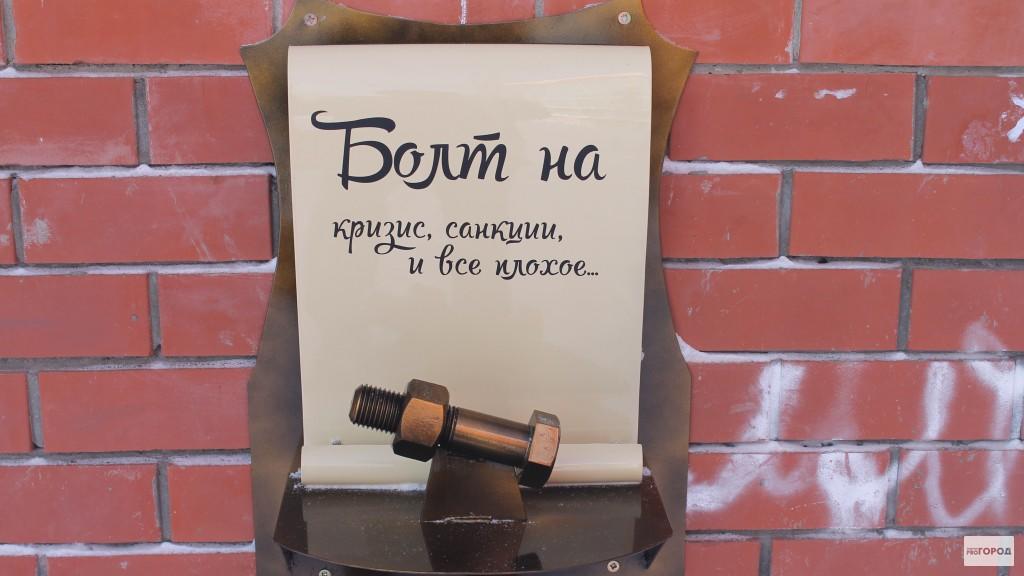 Болт на
кризис, санкции,
и все плохое...
PROГОРОД